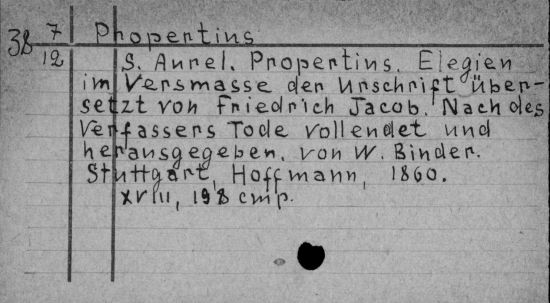 38 7/12 Phopertins
S. Aurel. Propertins. Elegien
im Versmasse der Urschrift über-
setzt von Friedrich Jacob. Nach des
Verfassers Tode vollendet und
herausgegeben. von W. Binder.
Stuttgart, Hoffmann, 1860.
XVIII, 198 стр.